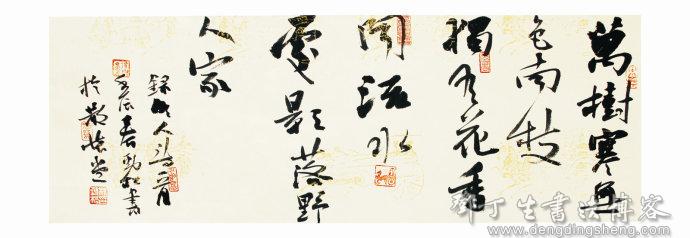 萬樹寒無
色南枝
獨有花香
聞流水
處影落野
人家
錄明人詩
壬辰春書
於堂
鄧丁生書法博客
www.dengdingsheng.com